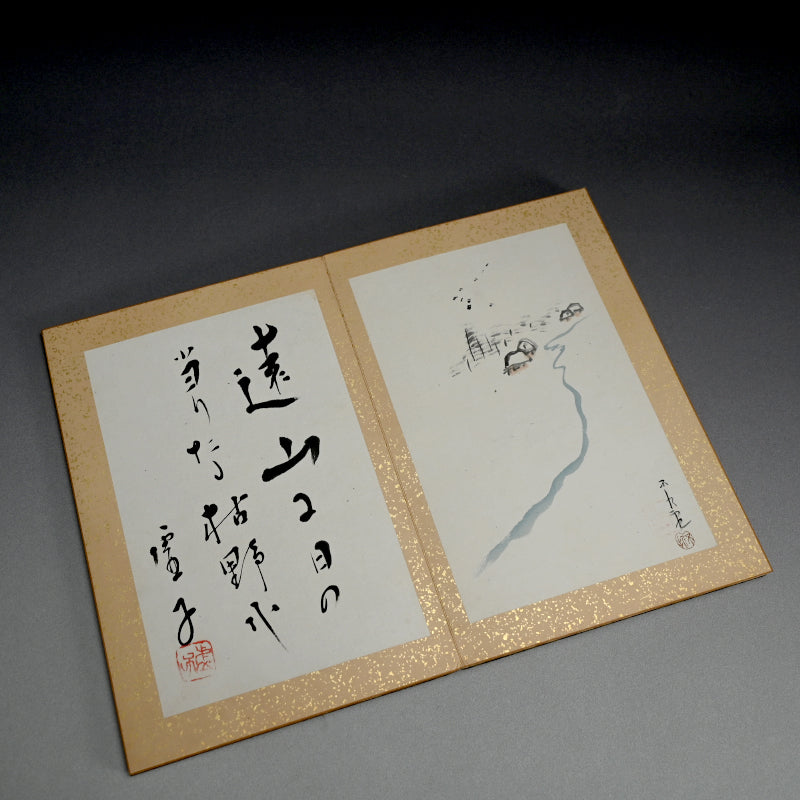 遠山に日の
当りたる枯野かな
虚子